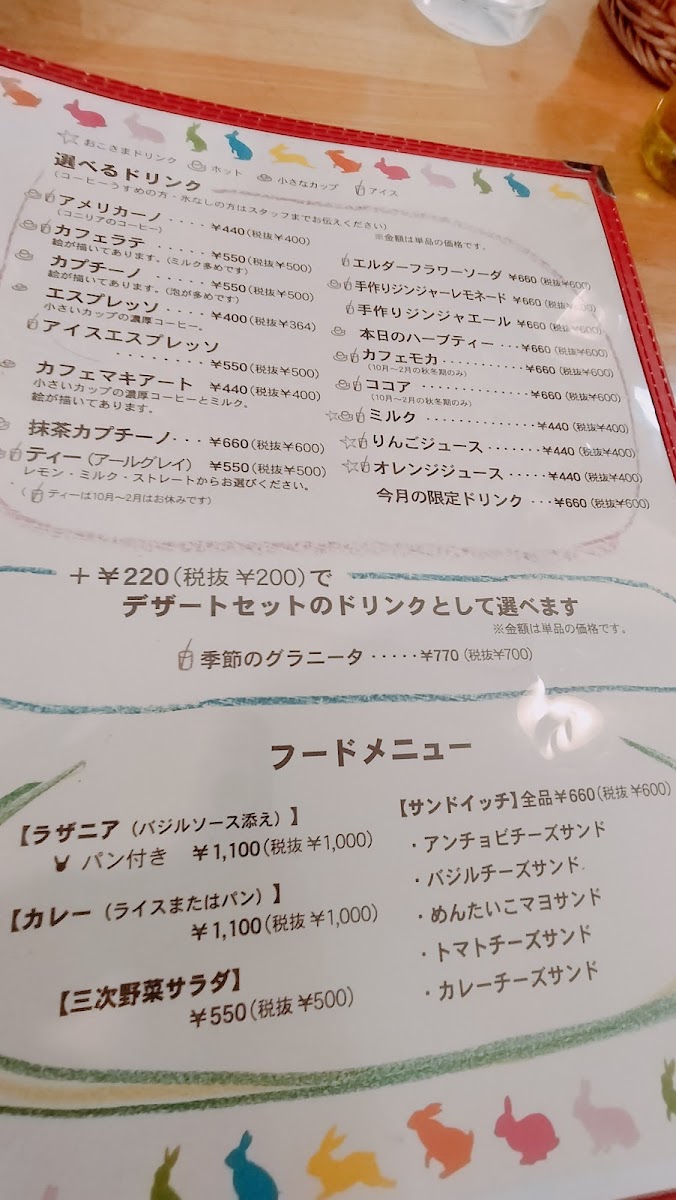 おこさまドリンク ホット 小さなカップ アイス
選べるドリンク
(コーヒーうすめの方・氷なしの方はスタッフまでお伝えください)
※金額は単品の価格です。
アメリカーノ ････ ¥440(税抜¥400)
(コニリアのコーヒー)
カフェラテ ･････ ¥550(税抜¥500)
絵が描いてあります。(ミルク多めです)
カプチーノ ･････ ¥550(税抜¥500)
絵が描いてあります。(泡が多めです)
エスプレッソ ････ ¥400(税抜¥364)
小さいカップの濃厚コーヒー。
アイスエスプレッソ
････････ ¥550(税抜¥500)
カフェマキアート ¥440(税抜¥400)
小さいカップの濃厚コーヒーとミルク。
絵が描いてあります。
抹茶カプチーノ･･･ ¥660(税抜¥600)
ティー(アールグレイ) ¥550(税抜¥500)
レモン・ミルク・ストレートからお選びください。
(ティーは10月～2月はお休みです)
エルダーフラワーソーダ ¥660(税抜¥600)
手作りジンジャーレモネード ¥660(税抜¥600)
手作りジンジャエール ¥660(税抜¥600)
本日のハーブティー ･･･¥660(税抜¥600)
カフェモカ ･･･････････¥660(税抜¥600)
(10月～2月の秋冬期のみ)
ココア ･･････････････¥660(税抜¥600)
(10月～2月の秋冬期のみ)
ミルク ･･････････････¥440(税抜¥400)
りんごジュース･･･････¥440(税抜¥400)
オレンジジュース ･････¥440(税抜¥400)
今月の限定ドリンク ･･･¥660(税抜¥600)
＋¥220(税抜¥200)で
デザートセットのドリンクとして選べます
※金額は単品の価格です。
季節のグラニータ ･････¥770(税抜¥700)
フードメニュー
【ラザニア(バジルソース添え)】
パン付き ¥1,100(税抜¥1,000)
【カレー(ライスまたはパン)】
¥1,100(税抜¥1,000)
【三次野菜サラダ】
¥550(税抜¥500)
【サンドイッチ】全品¥660(税抜¥600)
・アンチョビチーズサンド
・バジルチーズサンド
・めんたいこマヨサンド
・トマトチーズサンド
・カレーチーズサンド